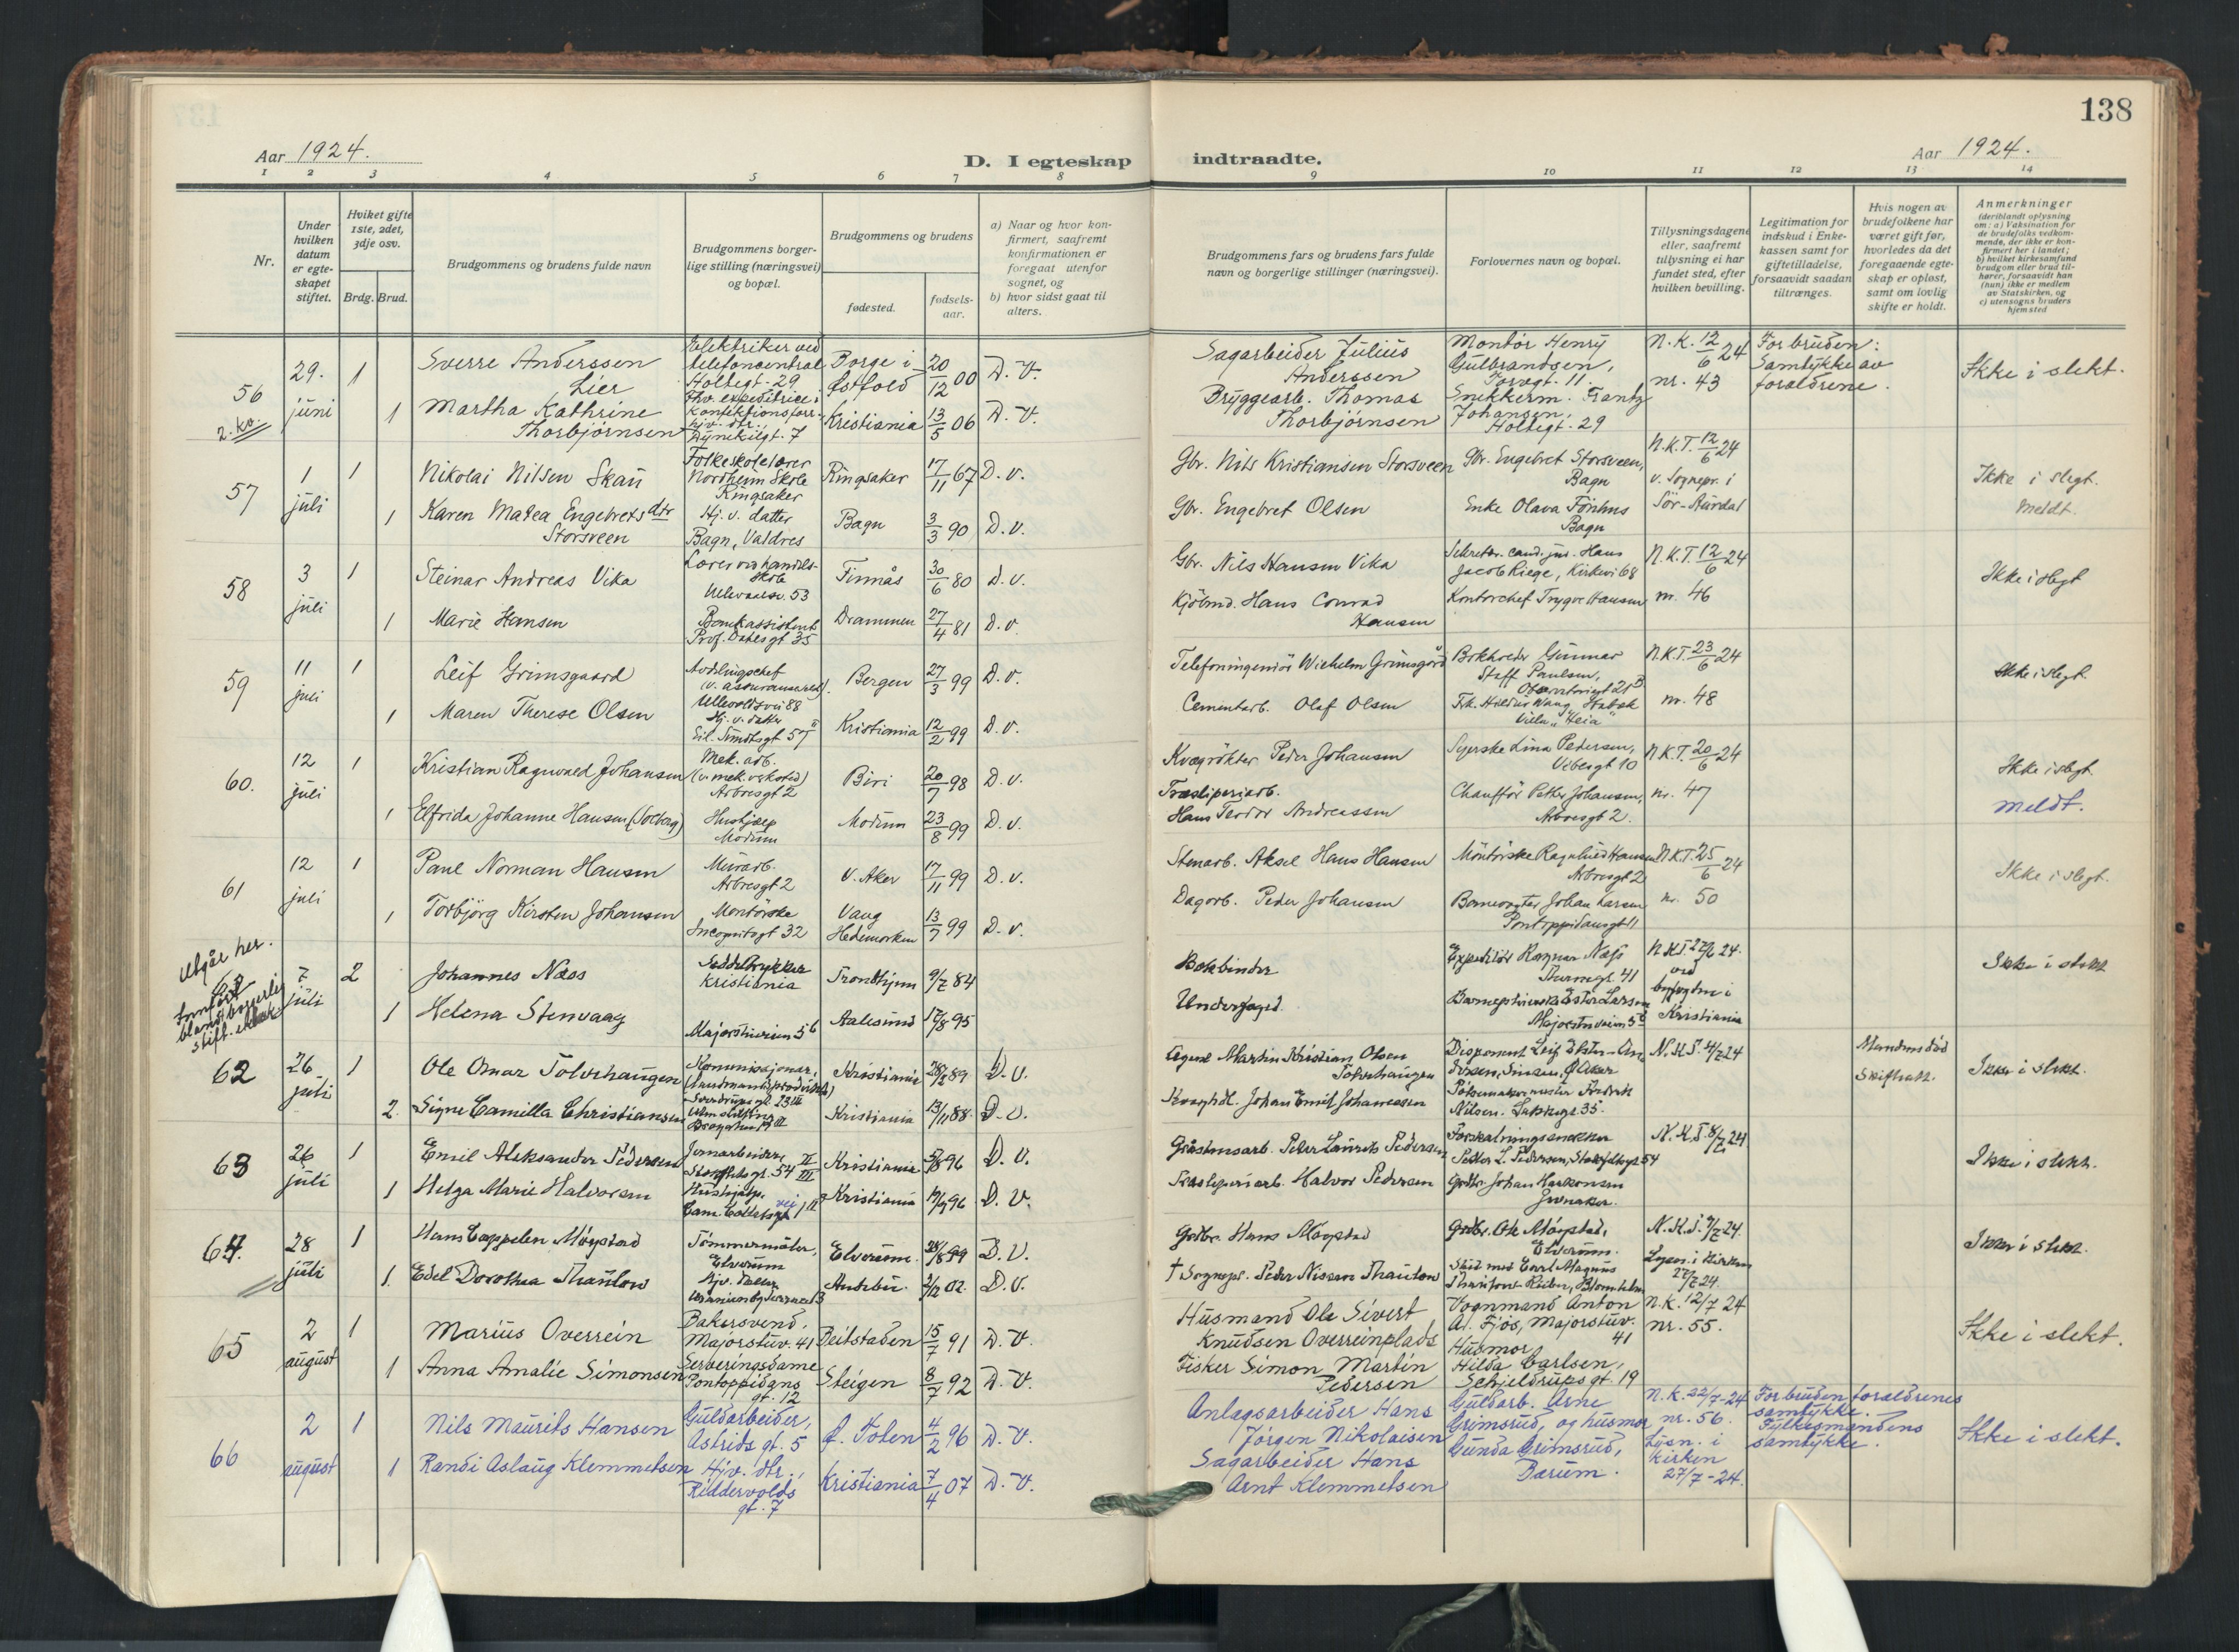 138
Aar 1924.
D. I egteskap indtraadte.
Aar 1924.
1 2 3 4 5 6 7 8 9 10 11 12 13 14
Nr.
Under hvilken datum er egteskapet stiftet.
Hviket gifte 1ste, 2det, 3dje osv.
Brdg. Brud.
Brudgommens og brudens fulde navn
Brudgommens borgerlige stilling (næringsvei) og bopæl.
Brudgommens og brudens
fødested.
fødselsaar.
a) Naar og hvor konfirmert, saafremt konfirmationen er foregaat utenfor sognet, og
b) hvor sidst gaat til alters.
Brudgommens fars og brudens fars fulde navn og borgerlige stillinger (næringsvei).
Forlovernes navn og bopæl.
Tillysningsdagene eller, saafremt tillysning ei har fundet sted, efter hvilken bevilling.
Legitimation for indskud i Enkekassen samt for giftetilladelse, forsaavidt saadan tiltrænges.
Hvis nogen av brudefolkene har været gift før, hvorledes da det foregaaende egteskap er opløst, samt om lovlig skifte er holdt.
Anmerkninger
(deriblandt oplysning om: a) Vaksination for de brudefolks vedkommende, der ikke er konfirmert her i landet; b) hvilket kirkesamfund brudgom eller brud tilhører, forsaavidt han (hun) ikke er medlem av Statskirken, og c) utensogns bruders hjemsted
56 2. ko. 29. juni 1 Sverre Anderssen Lier Elektriker ved telefoncentral Holtegt. 29. Borge i Østfold 20/12 00 D. V. Sagarbeider Julius Anderssen Montør Henry Gulbrandsen, Torvgt. 11. N.K. 12/6 24 nr. 43 For bruden: Samtykke av forældrene. Ikke i slekt.
1 Martha Kathrine Thorbjørnsen fhv. expeditrice i konfektionsforr. hjv. dtr., Dynekilgt. 7 Kristiania 13/5 06 D. V. Bryggearb. Thomas Thorbjørnsen Snekkerm. Frantz Johansen, Holtegt. 29
57 1 juli 1 Nikolai Nilsen Skau Folkeskolelærer Nordheim Skole Ringsaker Ringsaker 17/11 67 D. v. Gbr. Nils Kristiansen Storsveen Gbr. Engebret Storsveen, Bagn N.K.T. 12/6 24 v. Sognepr. i Sør-Aurdal Ikke i slegt.
1 Karen Matea Engebretsdtr Storsveen Hj. v. datter Bagn, Valdres Bagn 3/3 90 D. v. Gbr. Engebret Olsen Enke Olava Fönhus Bagn Meldt.
58 3 juli 1 Steinar Andreas Vika Lærer ved handelsskole Ullevaalsv. 53 Finnås 30/6 80 D. v. Gbr. Nils Hansen Vika Sekretær. cand. jur. Hans Jacob Riege, Kirkevei 68 N.K.T. 12/6 24 nr. 46 Ikke i slegt
1 Marie Hansen Bankassistent Prof. Dahlsgt 35 Drammen 27/4 81 D. v. Kjöbmd. Hans Conrad Hansen Kontorchef Trygve Hansen
59 11 juli 1 Leif Grimsgaard Avdelingschef Ullevoldsvei 88 Bergen 27/3 99 D. v. Telefoningeniör Wilhelm Grimsgård Bokholder Gunnar Steff Paulsen, Observatoriegt 21 B N.K.T. 23/6 24 nr. 48 Ikke i slegt
1 Maren Therese Olsen Hj. v. datter Eil. Sundtsgt 57 II Kristiania 12/2 99 D. v. Cementarb. Olaf Olsen Frk. Hildur Wang Stabæk Villa "Heia"
60. 12 juli 1 Kristian Ragnvald Johansen Mek. arb. (v. mek. verksted) Arbosgt 2 Biri 20/7 98 D. v. Kvægrökter Peder Johansen Syerske Lina Pedersen, Vibesgt 10 N.K.T. 20/6 24 nr. 47 Ikke i slegt.
1 Elfrida Johanne Hansen (Solberg) Hushjælp Modum Modum 23/8 99 D. v. Træsliperiarb. Hans Teodor Andreassen Chauffør Petter Johansen, Arbosgt 2. Meldt.
61 12 juli 1 Paul Norman Hansen Murarb. Arbosgt 2 V. Aker 17/11 99 D. v. Stenarb. Aksel Hans Hansen Mönsörske Ragnhild Hansen Arbosgt 2 N.K.T. 25/6 24 nr. 50 Ikke i slegt.
1 Torbjörg Kirsten Johansen Montörske Incognitogt 32 Vang Hedemarken 13/7 99 D. v. Dagarb. Peder Johansen Banevogter Johan Larsen Pontoppidansgt 11
Utgår her. 62 Innført blandt borgerlig stift. ektesk. 7 juli 2 Johannes Næss Seddeltrykker Kristiania Trondhjem 9/7 84 Bokbinder Expeditör Ragnar Næss Therесgt. 41 N.K.T. 27/6 24. ved byfogden i Kristiania Ikke i slekt
1 Helena Stenvaag Majorstuveien 5 b Aalesund 17/8 95 Underfoged Ester Larsen Majorstuveien 5 b
62 26 juli 1 Ole Omar Tolverhaugen Kommissjonær, Sverdrupsgt. 23 III Kristiania 28/8 89 D. V. Martin Kristian Olsen Tolverhaugen Disponent Leif N.K.T. 4/7 24 Manden død Skifteatt. Ikke i slekt.
2. Signe Camilla Christiansen Uten stilling Kristiania 13/11 88 D. V. Kvæghdl. Johan Emil Johannessen Pölsemakermester Fredrik Nilsen.
63 26 juli 1 Emil Aleksander Pedersen Jernarbeider, Storgt. 54 III Kristiania 5/8 96 D. V. Gråstensarb. Peter Laurits Pedersen Forskalingssnekker Petter L. Pedersen, 54 N.K.T. 8/7 24 Ikke i slekt.
1 Helga Marie Halvorsen Hushjelp. Cam. Collettsvei 1 Kristiania 19/9 96 D. V. Træsliperiarb. Halvor Pedersen Gårdbr. Johan Haakonsen Jevnaker.
64. 28 juli 1 Hans Cappelen Møystad Tömmermåler, Elverum Elverum. 28/8 99 D. V. Gårdbr. Hans Møystad Gårdbr. Ole Møystad, Elverum. N.K.T. 9/7 24. Lysn. i Kirken 27/7 24. Ikke i slekt.
1. Edel Dorothea Thaulow Hjv. datter Uranienborg Terrasse 13 Andebu. 2/12 02. D. V. † Sognepr. Peder Nissen Thaulow Stud. med. Carl Magnus Thaulow
65 2 august 1 Marius Overrein Bakersvend, Majorstuv. 41 Beitstaden 15/7 91 D. V. Husmand Ole Sivert Knudsen Overreinplads Vognmand Anton Al. Fjøs, Majorstuv. 41 N.K. 12/7 24 nr. 55. Ikke i slekt.
1 Anna Amalie Simonsen Serveringsdame Pontoppidans gt. 12 Steigen 8/7 92 D. V. Fisker Simon Martin Pedersen Husmor Hilda Carlsen, Schjeldrups gt. 19
66 2 august 1 Nils Maurits Hansen Guldarbeider, Astrids gt. 5 Ø. Toten 4/2 96 D. V. Anlægsarbeider Hans Jørgen Nikolaisen Guldarb. Arne Grimsrud, og husmor Gunda Grimsrud, Bærum. N.K. 22/7-24 nr. 56. Lysn. i kirken 27/7-24. For bruden forældrenes samtykke. Fylkesmandens samtykke. Ikke i slekt.
1 Randi Aslaug Klemmetsen Hjv. dtr., Riddervolds gt. 7 Kristiania 7/4 07 D. V. Sagarbeider Hans Arnt Klemmetsen